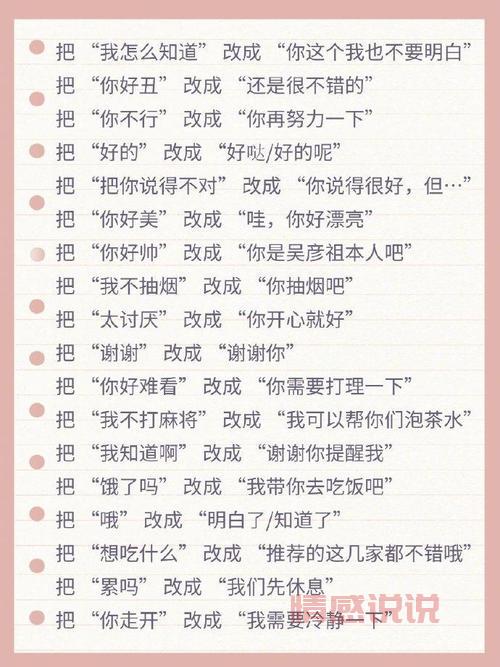 把 “我怎么知道” 改成 “你这个我也不要明白”
把 “你好丑” 改成 “还是很不错的”
把 “你不行” 改成 “你再努力一下”
把 “好的” 改成 “好哒/好的呢”
把 “把你说得不对” 改成 “你说得很好，但…”
把 “你好美” 改成 “哇，你好漂亮”
把 “你好帅” 改成 “你是吴彦祖本人吧”
把 “我不抽烟” 改成 “你抽烟吧”
把 “太讨厌” 改成 “你开心就好”
把 “谢谢” 改成 “谢谢你”
把 “你好难看” 改成 “你需要打理一下”
把 “我不打麻将” 改成 “我可以帮你们泡茶水”
把 “我知道啊” 改成 “谢谢你提醒我”
把 “饿了吗” 改成 “我带你去吃饭吧”
把 “哦” 改成 “明白了/知道了”
把 “想吃什么” 改成 “推荐的这几家都不错哦”
把 “累吗” 改成 “我们先休息”
把 “你走开” 改成 “我需要冷静一下”
情感说说